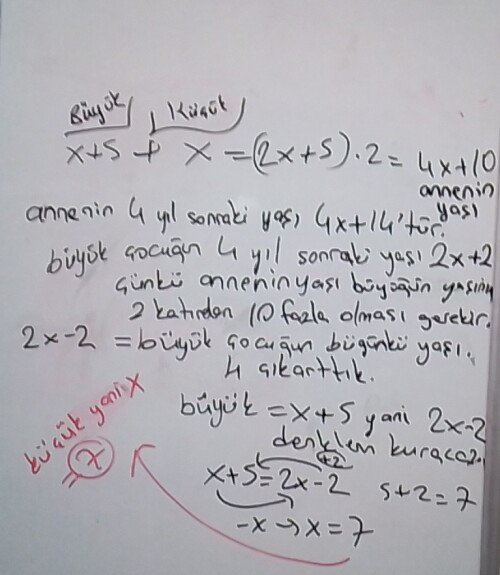 Büyük Küçük
x+5 + x = (2x+5).2 = 4x+10
annenin yaşı
annenin 4 yıl sonraki yaşı 4x+14'tür.
büyük çocuğun 4 yıl sonraki yaşı 2x+2
çünkü annenin yaşı büyüğün yaşının
2 katından 10 fazla olması gerekir.
2x-2 = büyük çocuğun bugünkü yaşı.
4 çıkarttık.
büyük = x+5 yani 2x-2
denklem kuracaz.
küçük yani x
= 7
+2
x+5=2x-2 5+2=7
-x → x=7